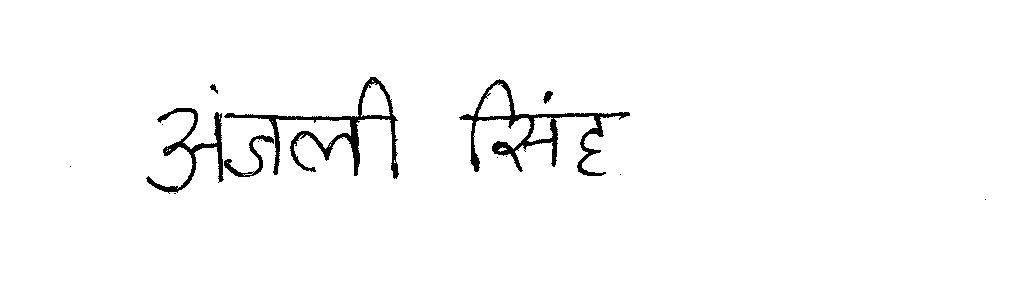 अंजली सिंह